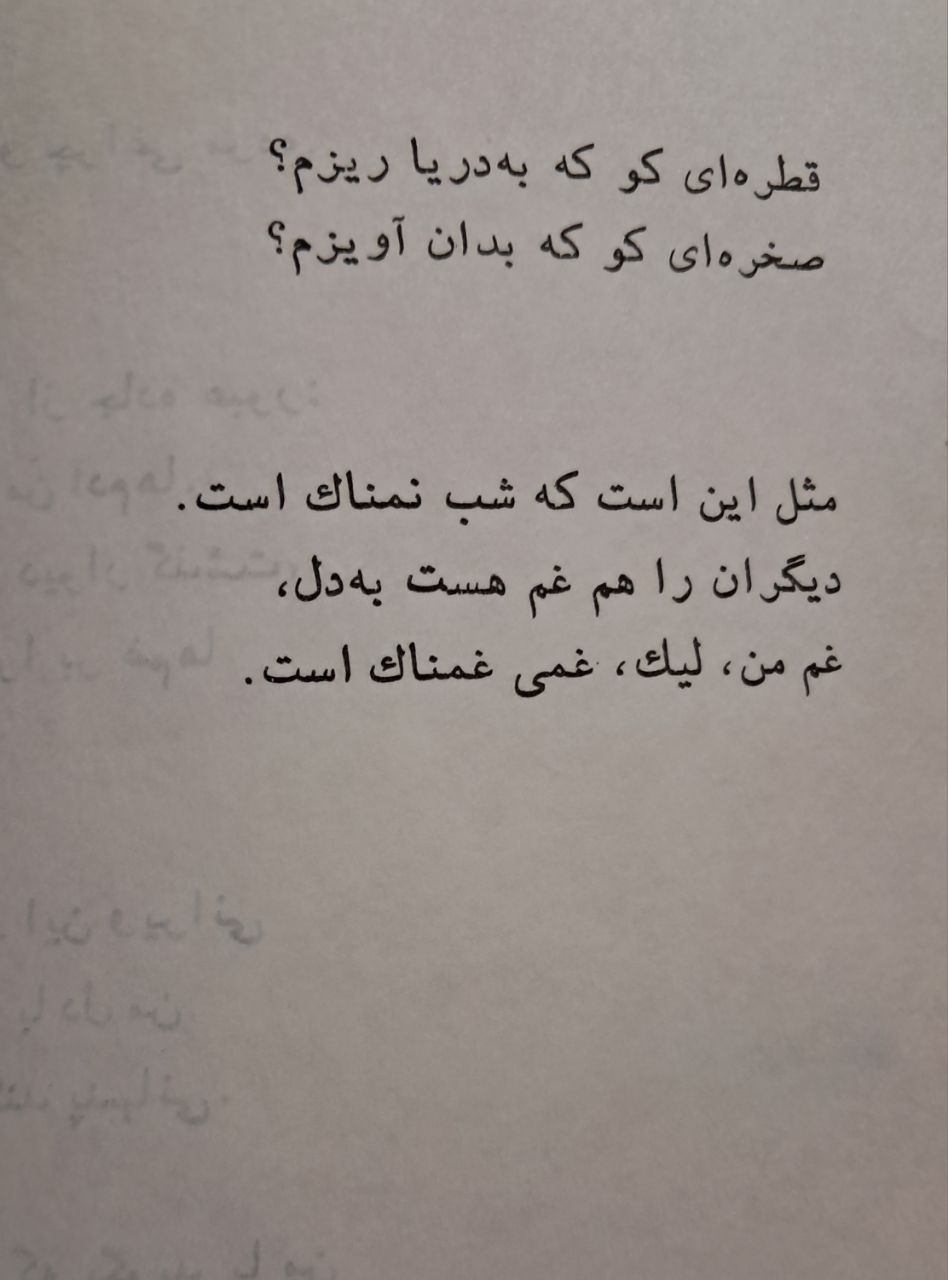 قطره‌ای کو که به‌دریا ریزم؟
صخره‌ای کو که بدان آویزم؟
مثل این است که شب نمناك است.
دیگران را هم غم هست به‌دل،
غم من، لیك، غمی غمناك است.